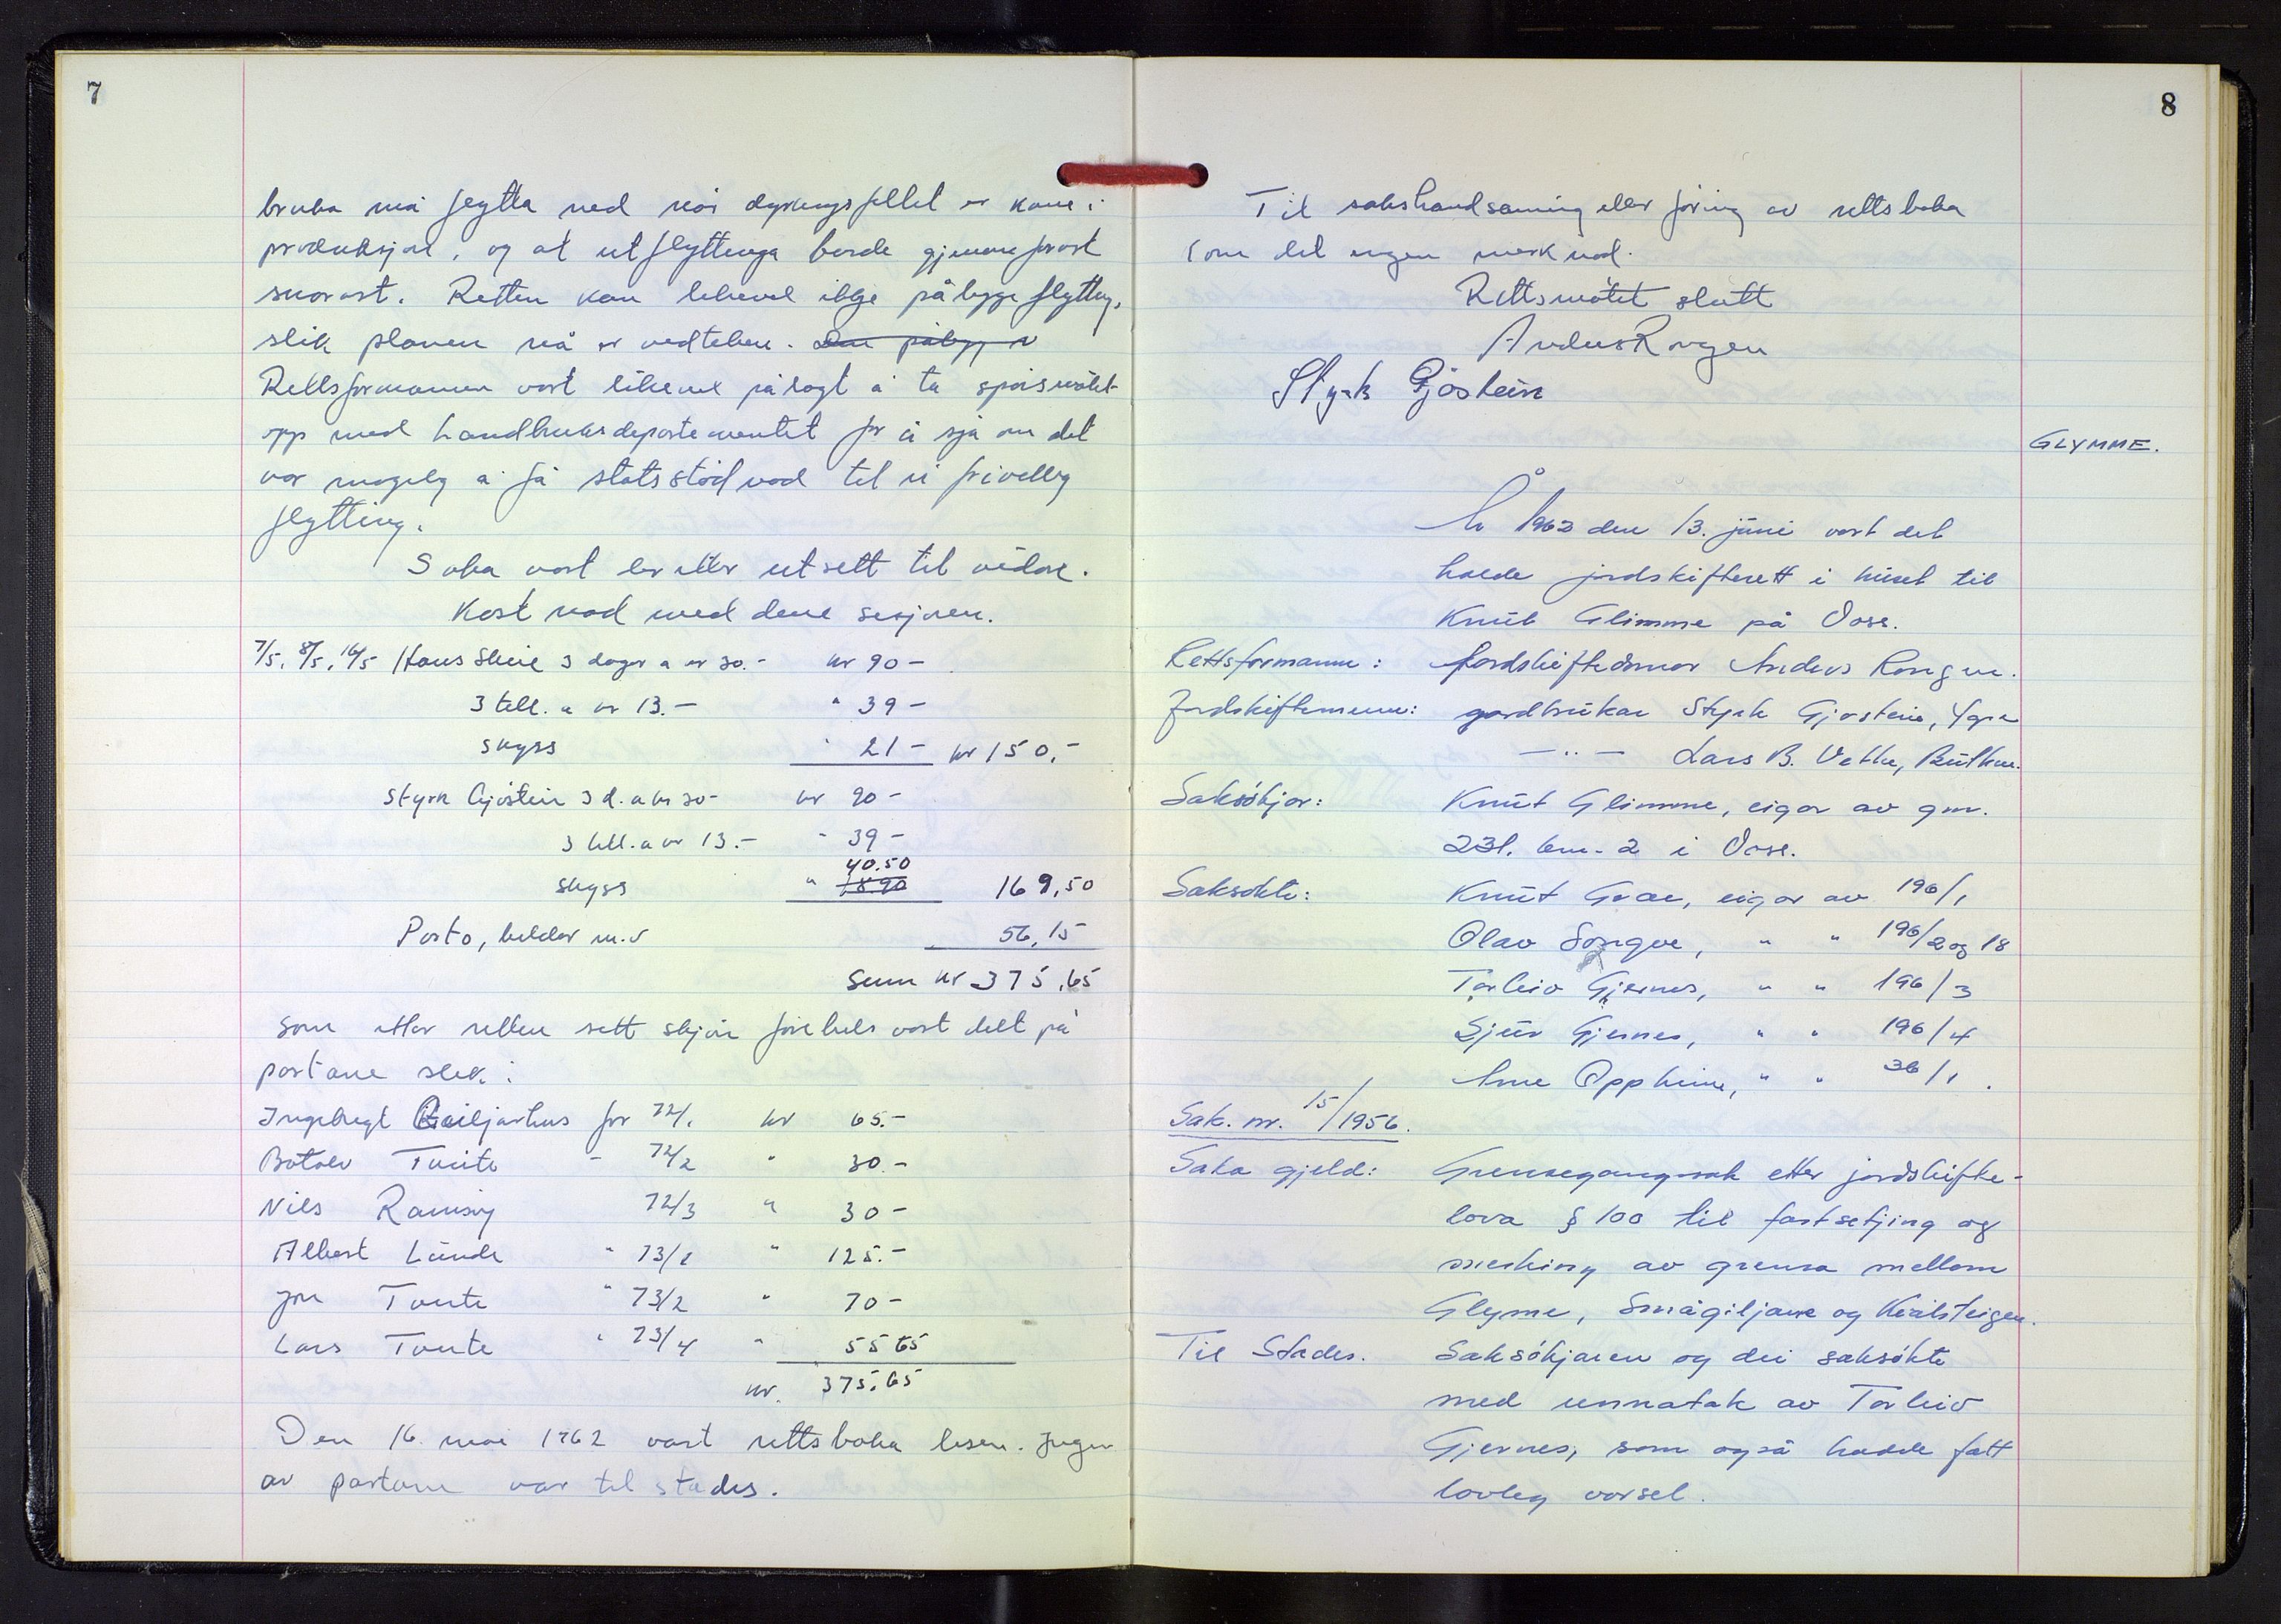 7
bruka må flytta ned når dyrkingsfeltet er kome i
produksjon, og at utflyttinga burde gjennomførast
snarast. Retten kan likevel ikkje påleggja flytting,
slik planen nå er vedteken. Den pålegg
Rettsformannen vart likevel pålagt å ta spørsmålet
opp med Landbruksdepartementet for å sjå om det
var mogeleg å få statsstönad til ei friviljug
flytting.
Saka vart er etter utsett til vidare.
Kostnad med dene sesjonen.
7/5, 8/5, 16/5 Hans Skeie 3 dagar a kr 30.- kr 90 -
3 till. a kr 13.- " 39 -
skyss " 21 - kr 150.-
Styrk Gjöstein 3 d. a kr 30- kr 90 -
3 till. a kr 13.- " 39 -
40.50
skyss " 18.90 169,50
Porto, bilder m.v 56,15
Sum kr 375,65
som etter retten sett skjön førebels vart delt på
partane slik:
Ingebrigt Geiljarhus for 72/1 kr 65.-
Botolv Tvinte - 72/2 " 30.-
Nils Ramsøy 72/3 " 30 -
Albert Lunde " 73/1 " 125.-
Jon Tvinte " 73/2 " 70 -
Lars Tvinte " 73/4 " 55 65
kr. 375.65
Den 16. mai 1962 vart rettsboka lesen. Ingen
av partane var til stades.
8
Til sakshandsaming eller føring av rettsboka
kom det ingen merknad.
Rettsmötet slutt
Anders Rongen
Styrk Gjöstein
GLYMME.
År 1962 den 13. juni vart det
halde jordskifterett i huset til
Knut Glimme på Voss.
Rettsformann: Jordskiftedomar Anders Rongen.
Jordskiftemenn: gardbrukar Styrk Gjøstein,
— " — Lars B. Vethe,
Saksökjar: Knut Glimme, eigar av gnr.
231. bnr. 2 i Voss.
Saksökte: Knut Grae, eigar av 196/1
Olav Songve, " " 196/2 og 18
Torleiv Gjernes, " " 196/3
Sjur Gjernes, " " 196/4
Arne Oppheim, " " 36/1.
Sak. nr. 15/1956.
Saka gjeld: Grensegangssak etter jordskifte-
lova § 100 til fastsetjing og
merking av grensa mellom
Glyme, Smågiljane og Kvilsteigen.
Til Stades. Saksökjaren og dei saksökte
med unnatak av Torleiv
Gjernes, som også hadde fått
lovleg varsel.